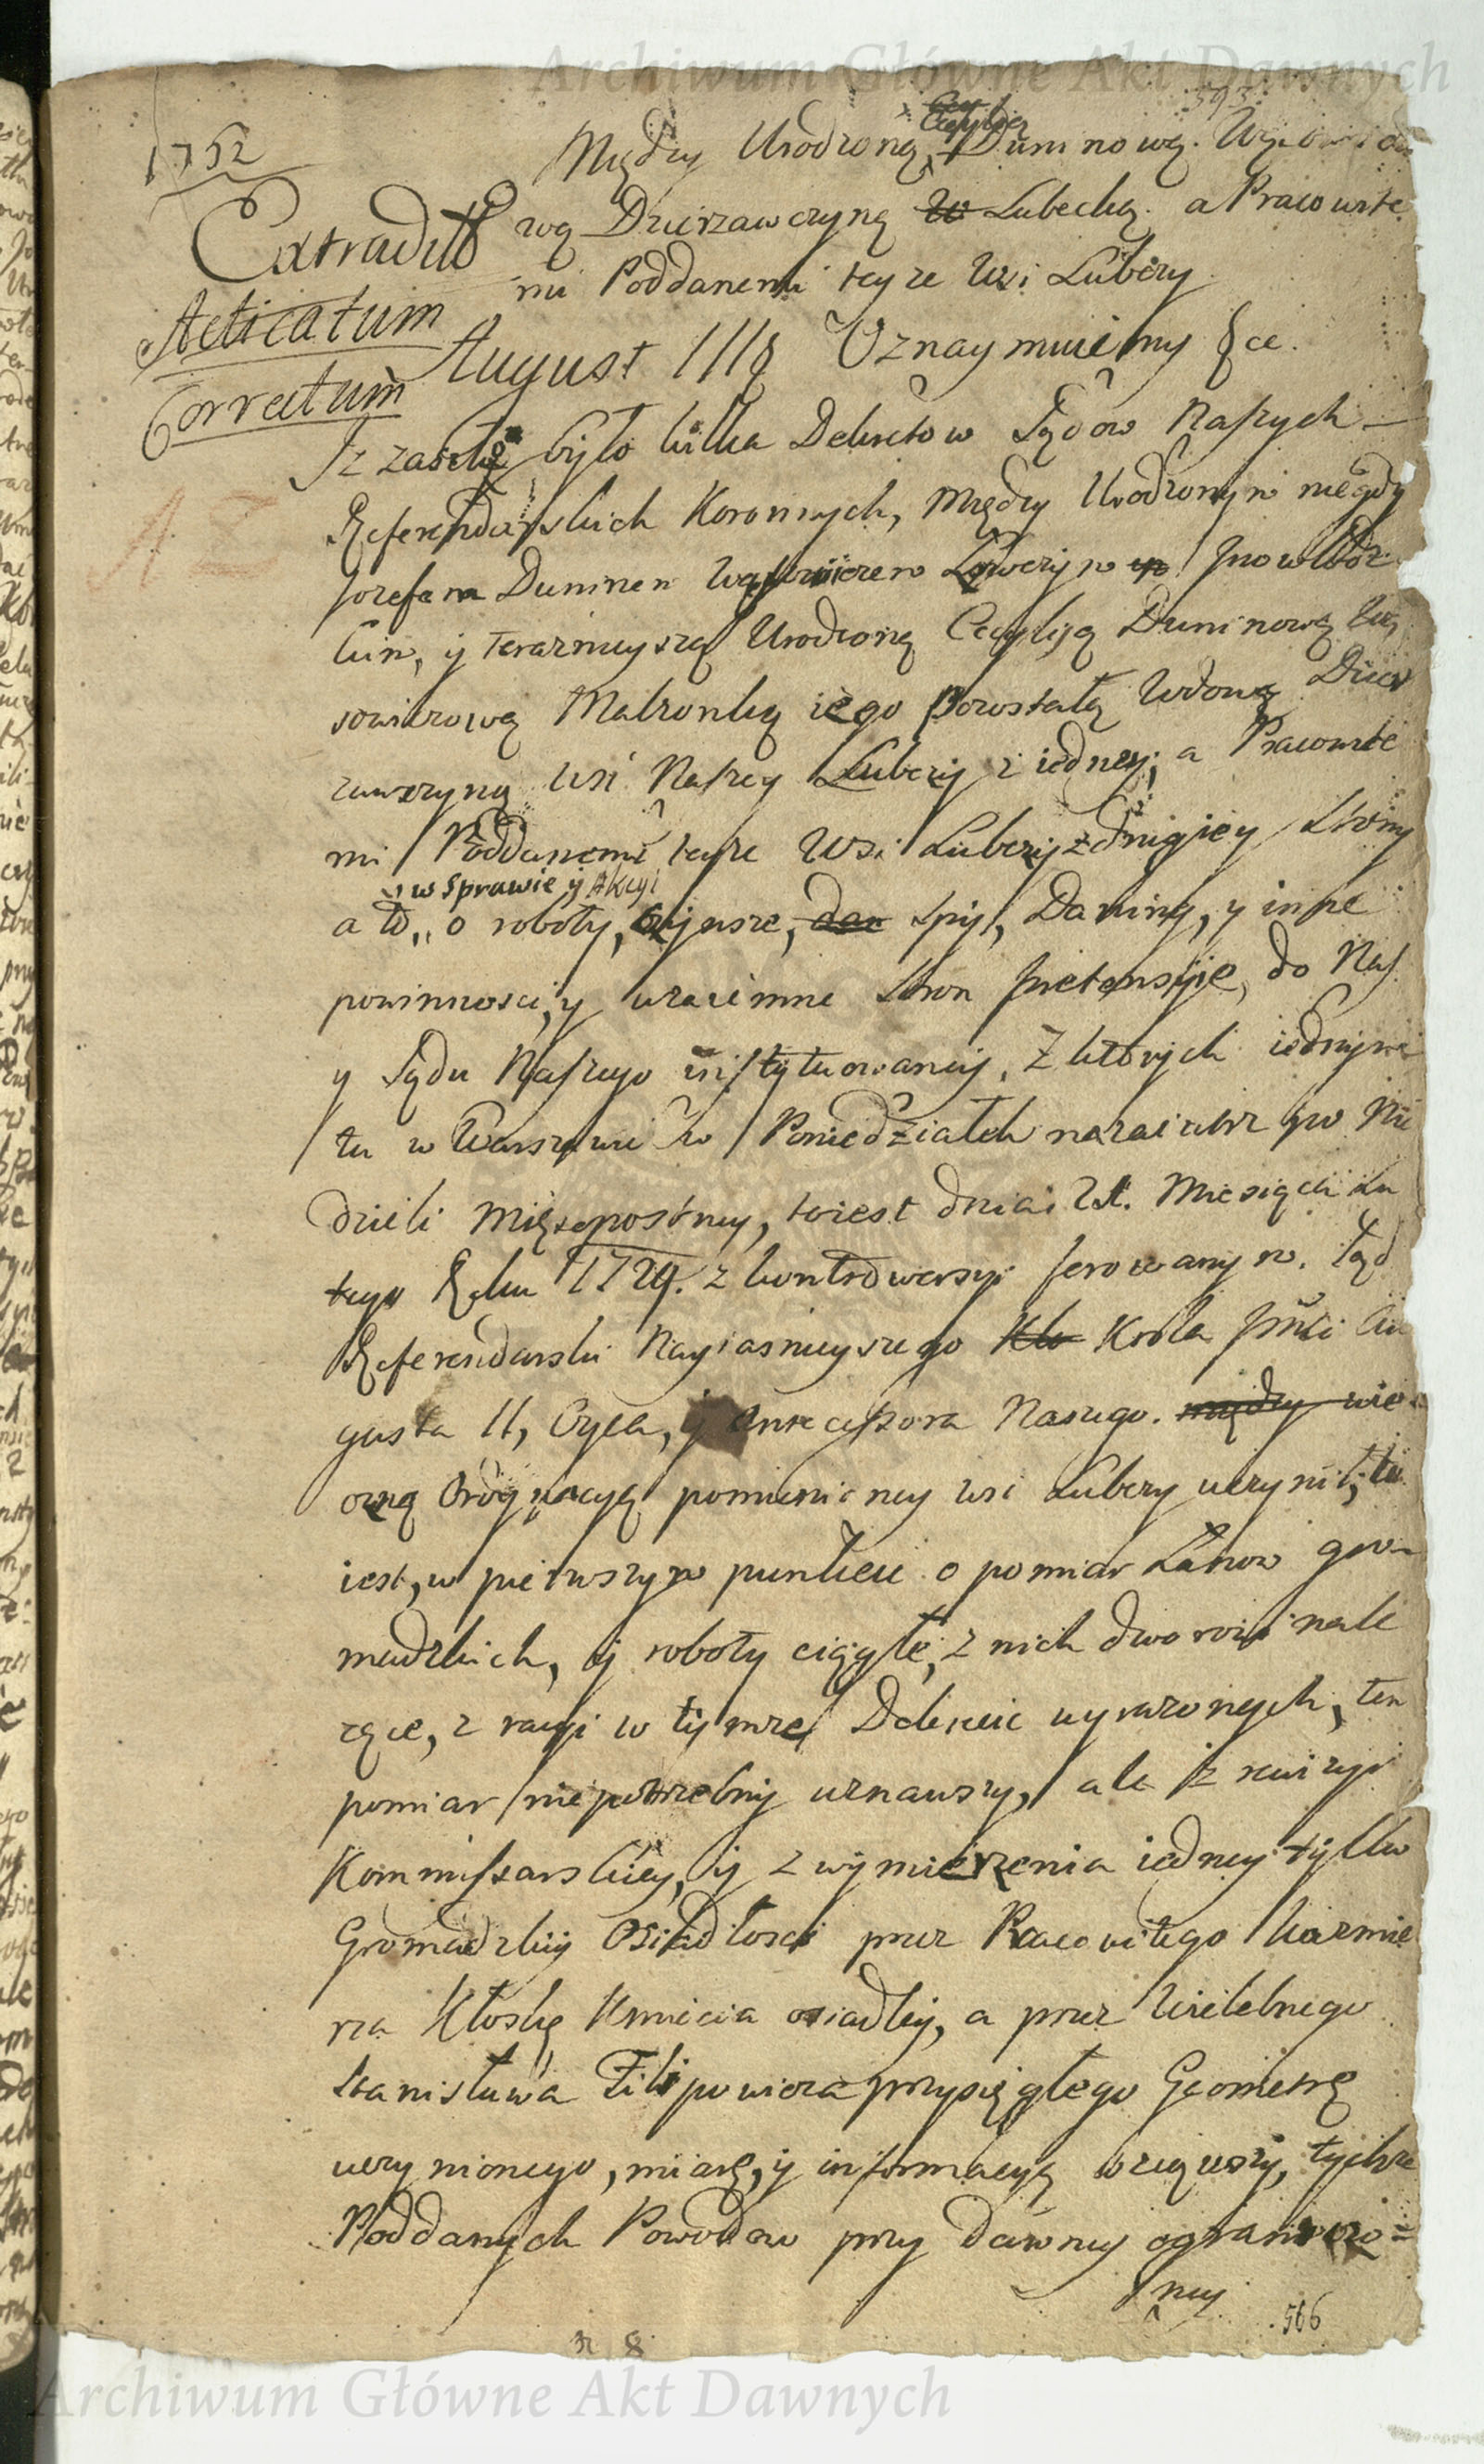 Archiwum Główne Akt Dawnych
593.
1752
Extradit
Acticatum
Correctum
Między Urodzoną Cecylią Duninową
wą Dzierzawczyną Lubecką. a Pracowite
mi Poddanemi teyze Wsi Lubczy
August IIIs Oznaymuiemy &ce.
Jz zaszło było kilka Dekretow Sądow Naszych
Referendarskich Koronnych, Między Urodzonym niegdy
Jozefem Duninem Łowczym Jnowłodz
kim, y teraznieyszą Urodzoną Cecyliją Duninową Wą
sowiczową Małzonką iego pozostałą Wdową Dzier
zawczyną Wsi Naszey Lubczy z iedney, a Pracowite
mi Poddanemi teyze Wsi Lubczy z drugiey Strony
w Sprawie y Akcyi
a to, o roboty, czynsze, dan spy, Daniny, y insze
powinnosci, y wzaiemne Stron pretensyie, do Nas
y Sądu Naszego instytuowaney, Z ktorych iednym
tu w Warszawie w Poniedziałek nazaiutrz po Nie
dzieli Mięsopostney, toiest dnia 21. Miesiąca Lu
tego Roku 1729. z kontrowersyi ferowanym. Sąd
Referendarski Nayiasnieyszego Kla Krola Jmci Au
gusta II, Oyca, y Antecessora Naszego. między wie
czną Ordynacyą pomienioney wsi Lubczy uczynił, to
iest, w pierwszym punkcie o pomiar Łanow gro
madzkich, y roboty ciągłe, z nich dworowi nale
zące, z racyi w tymze Dekrecie wyrazonych, ten
pomiar niepotrzebny uznawszy, ale z rewizyi
Kommissarskiey, y z wymierzenia iedney tylko
Gromadzkiy Osiadłosci przez Pracowitego Kazmie
rza Kłoskę Kmiecia osiadłey, a przez Wielebnego
Stanisława Filipowicza przysięgłego Geometrę
uczynionego, miarę, y informacyą wziąwszy, tychze
Poddanych Powodow przy dawney ograniczo=
ney
566
Archiwum Główne Akt Dawnych